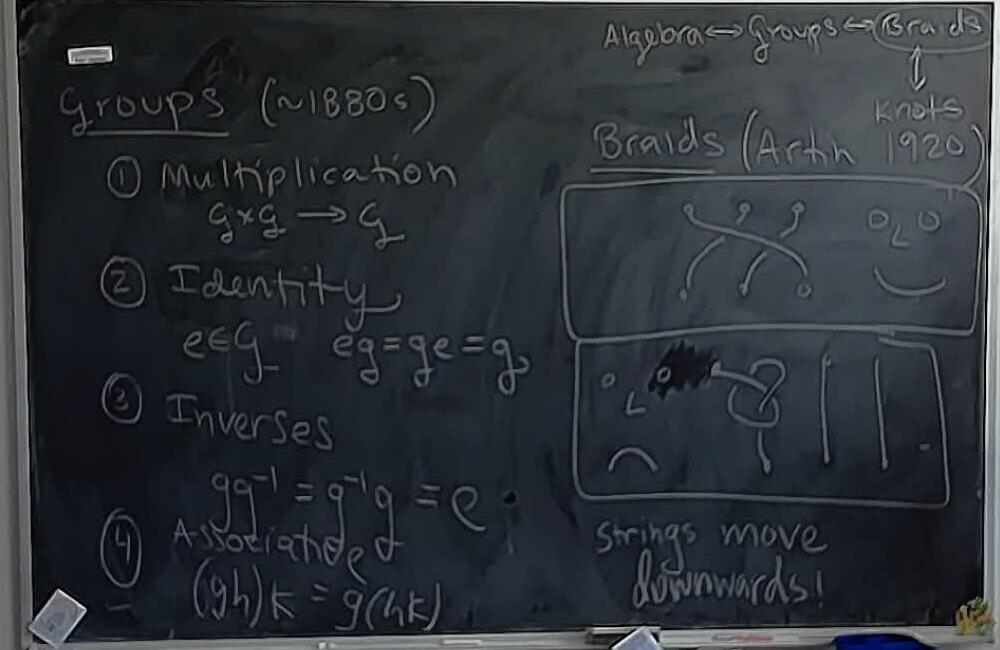 Algebra ↔ Groups ↔ Braids
↕
Knots
Groups (~1880s)
① Multiplication
G×G → G
② Identity
e∈G eg=ge=g
③ Inverses
gg⁻¹ = g⁻¹g = e
④ Associative
(gh)k = g(hk)
Braids (Artin 1920)
Strings move
downwards!